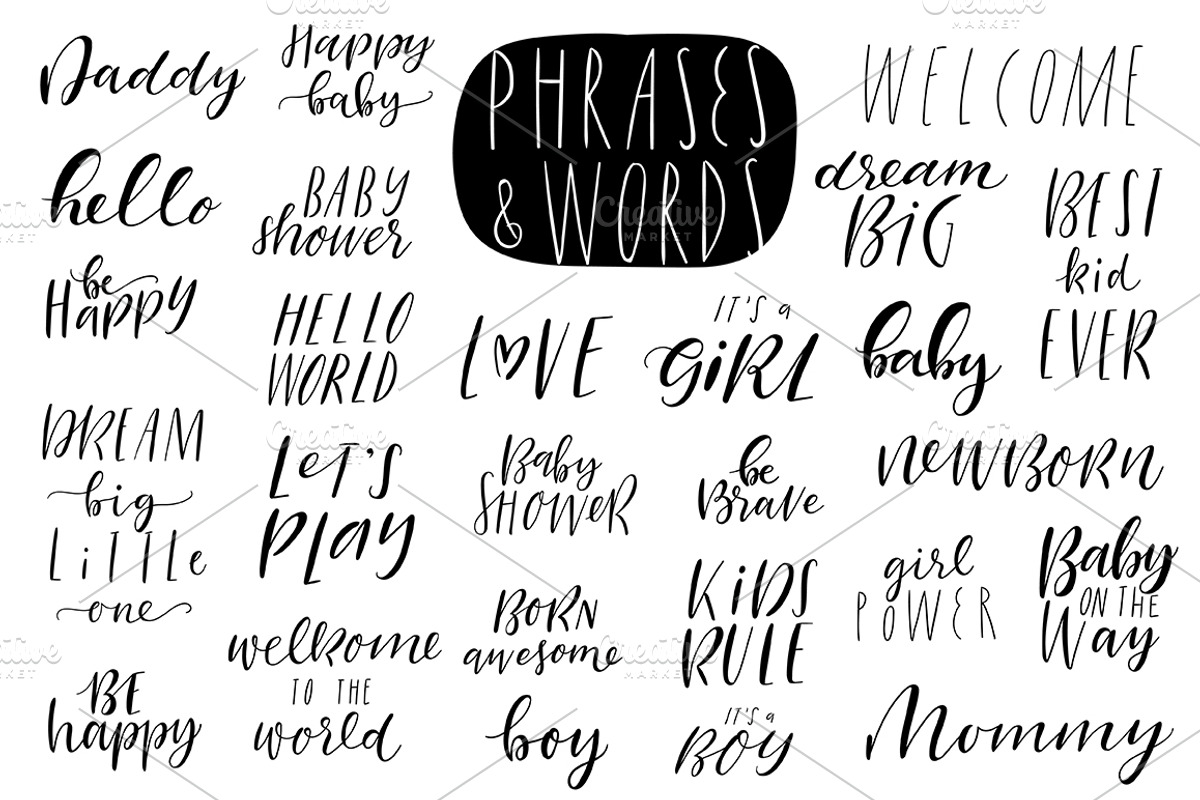 Daddy
Happy
baby
PHRASES
& WORDS
WELCOME
hello
BABY
shower
dream
BiG
BEST
kid
EVER
be
Happy
HELLO
WORLD
LOVE
IT'S a
GiRL
baby
DREAM
big
LiTTLe
one
LeT'S
PLAY
Baby
SHOWeR
be
Brave
NeWBORN
BORN
awesome
KiDS
RULE
girl
POWER
Baby
ON THE
Way
BE
happy
welkome
TO THE
world
boy
IT'S a
BOY
Mommy
Creative
MARKET
Creative
MARKET
Creative
MARKET
Creative
MARKET
Creative
MARKET
Creative
MARKET
Creative
MARKET